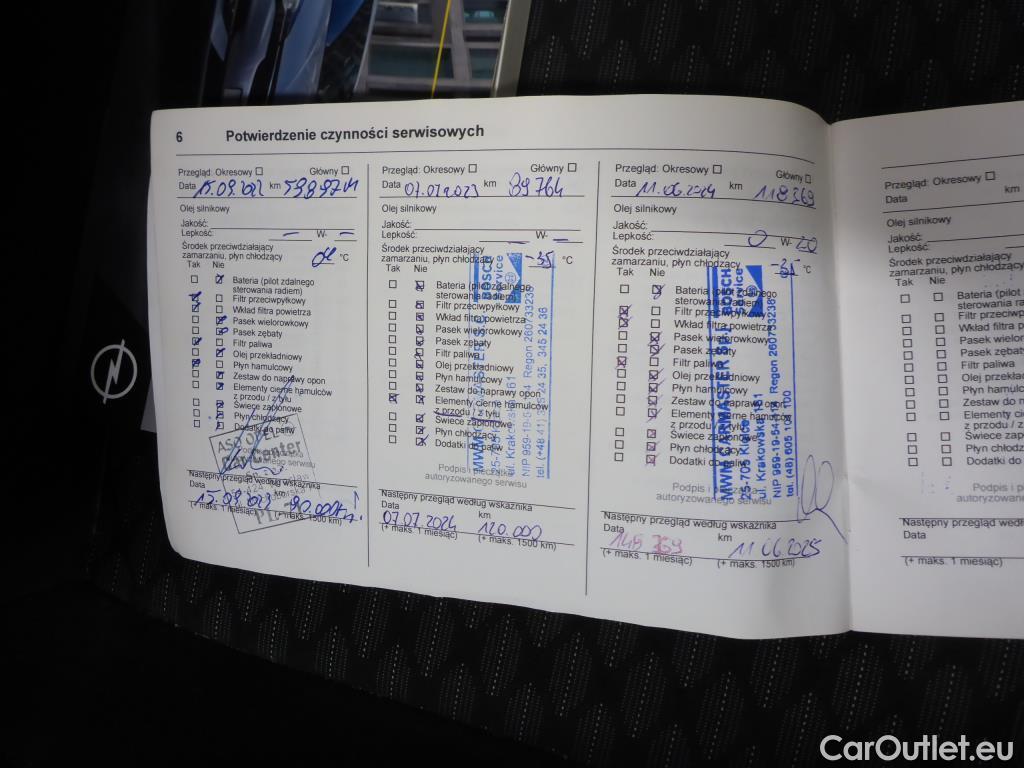 6 Potwierdzenie czynności serwisowych
Przegląd: Okresowy Główny
Data 15.09.2022 km
Olej silnikowy
Jakość:
Lepkość: — W- —
Środek przeciwdziałający
zamarzaniu, płyn chłodzący °C
Tak Nie
Bateria (pilot zdalnego
sterowania radiem)
Filtr przeciwpyłkowy
Wkład filtra powietrza
Pasek wielorowkowy
Pasek zębaty
Filtr paliwa
Olej przekładniowy
Płyn hamulcowy
Zestaw do naprawy opon
Elementy cierne hamulców
z przodu / z tyłu
Świece zapłonowe
Płyn chłodzący
Dodatki do paliw
ASO OPEL
Car Center
Następny przegląd według wskaźnika
Data km
15.09.2023
(+ maks. 1 miesiąc) (+ maks. 1500 km)
Przegląd: Okresowy Główny
Data 07.07.2023 km 89764
Olej silnikowy
Jakość:
Lepkość: — W- —
Środek przeciwdziałający
zamarzaniu, płyn chłodzący -35 °C
Tak Nie
Bateria (pilot zdalnego
sterowania radiem)
Filtr przeciwpyłkowy
Wkład filtra powietrza
Pasek wielorowkowy
Pasek zębaty
Filtr paliwa
Olej przekładniowy
Płyn hamulcowy
Zestaw do naprawy opon
Elementy cierne hamulców
z przodu / z tyłu
Świece zapłonowe
Płyn chłodzący
Dodatki do paliw
BOSCH
Service
Regon 260733236
345 24 36
Podpis i
autoryzowanego serwisu
Następny przegląd według wskaźnika
Data km
07.07.2024 120.000
(+ maks. 1 miesiąc) (+ maks. 1500 km)
Przegląd: Okresowy Główny
Data 11.06.2024 km 118369
Olej silnikowy
Jakość:
Lepkość: 0 W- 20
Środek przeciwdziałający
zamarzaniu, płyn chłodzący -35 °C
Tak Nie
Bateria (pilot zdalnego
sterowania radiem)
Filtr przeciwpyłkowy
Wkład filtra powietrza
Pasek wielorowkowy
Pasek zębaty
Filtr paliwa
Olej przekładniowy
Płyn hamulcowy
Zestaw do naprawy opon
Elementy cierne hamulców
z przodu / z tyłu
Świece zapłonowe
Płyn chłodzący
Dodatki do paliw
BOSCH
Service
25-705 Kielce
ul. Krakowska 161
Regon 260733236
tel. (48) 605 100 100
Podpis i
autoryzowanego serwisu
Następny przegląd według wskaźnika
Data km
148 369 11 06.2025
(+ maks. 1 miesiąc) (+ maks. 1500 km)
Przegląd: Okresowy
Data km
Olej silnikowy
Jakość:
Lepkość:
Środek przeciwdziałający
zamarzaniu, płyn chłodzą
Tak Nie
Bateria (pilot
sterowania ra
Filtr przeciwp
Wkład filtra p
Pasek wielor
Pasek zębaty
Filtr paliwa
Olej przekła
Płyn hamulc
Zestaw do n
Elementy ci
z przodu / z
Świece zap
Płyn chłodz
Dodatki do
Podpis i p
autoryzowane
Następny przegląd wedłu
Data
(+ maks. 1 miesiąc)
CarOutlet.eu